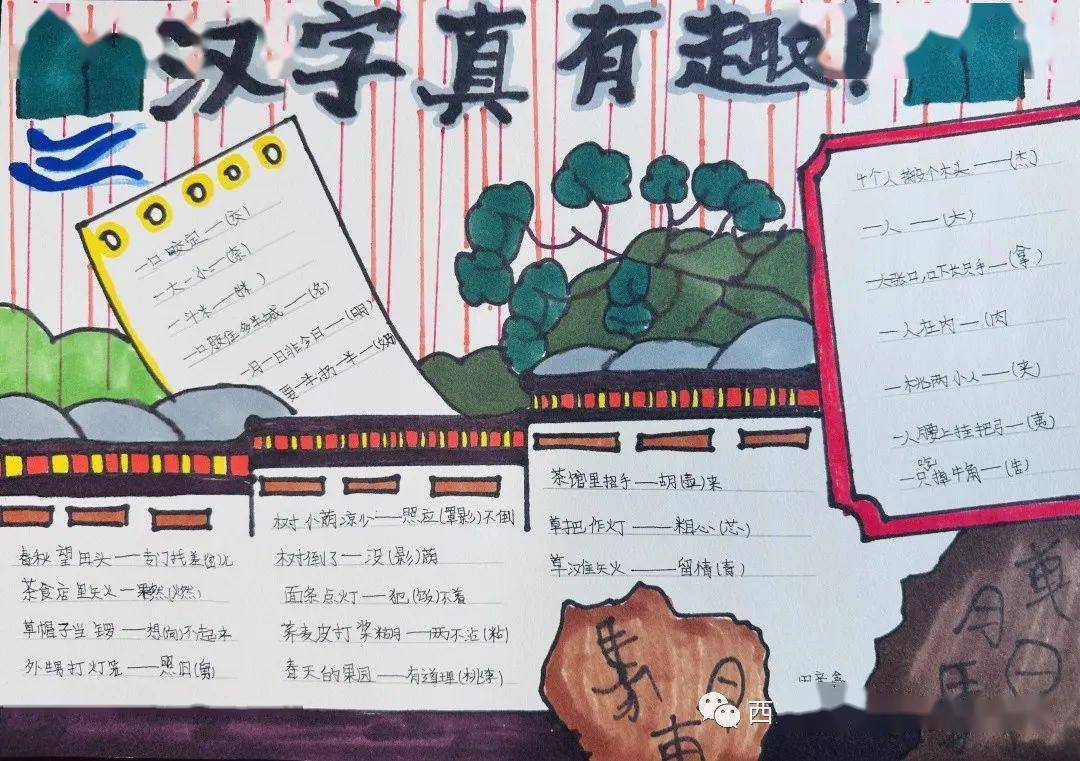 汉字真有趣!
一口咬定——(交)
一大一小——(奈)
一斗米——(料)
一口咬住多半截——(名)
一月一日非今日——(明)
要一半，扔一半——(奶)
十个人搬个木头——(杰)
一人——(大)
一大张口，口下长只手——(拿)
一人在内——(肉
一桃两小人——(夹)
一人腰上挂把弓——(夷)
一只掉牛角——(告)
春秋望田头——专门找差(茬)儿
茶食店里失火——果然(燃)
草帽子当锣——想(响)不起来
外甥打灯笼——照旧(舅)
树小荫凉少——照应(罩影)不倒
树倒了——没(影)荫
面条点灯——犯(饭)不着
荞麦皮打浆糊——两不沾(粘)
春天的果园——有道理(桃李)
茶馆里招手——胡(壶)来
草把作灯——粗心(芯)
草滩失火——留情(青)
月
月
日
西